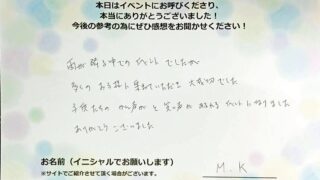 本日はイベントにお呼びくださり、
本当にありがとうございました!
今後の参考の為にぜひ感想をお聞かせください!
雨が降る中での イベント でしたが
多くの お客様に 来ていただき 大成功でした
子供たちの と 笑声が あふれる イベントになりました
ありがとう ございました
お名前(イニシャルでお願いします)
※サイトでご紹介させて頂く場合がございます。
M.K